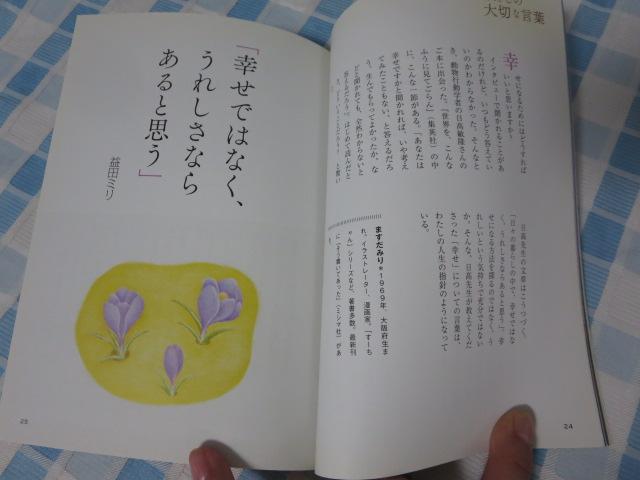 大切な言葉
幸せになるためにはどうすれば
いいと思いますか?
インタビューで聞かれることがあ
るのだけれど、いつもどう答えてい
いのかわからなかった。そんなと
き、動物行動学者の日高敏隆さんの
ご本に出会った。『世界を、こんな
ふうに見てごらん』(集英社)の中
に、こんな一節がある。「あなたは
幸せですかと聞かれれば、いや考え
てみたこともない、と答えるだろ
う。生んでもらってよかったか、な
どと聞かれても、全然わからないと
答えるだろう」。はじめて読んだと
日高先生の文章はこうつづく。
「日々の暮らしの中で、幸せではな
く、うれしさならあると思う」。幸
せになる方法を探るのではなく、う
れしいという気持ちで充分ではない
か。そんな、日高先生が教えてくだ
さった「幸せ」についての言葉は、
わたしの人生の指針のようになって
いる。
ますだみり●1969年、大阪府生ま
れ。イラストレーター、漫画家。「すーち
ゃん」シリーズなど、著書多数。最新刊
に『そう書いてあった』(ミシマ社)があ
24
「幸せではなく、
うれしさなら
あると思う」
益田ミリ
25